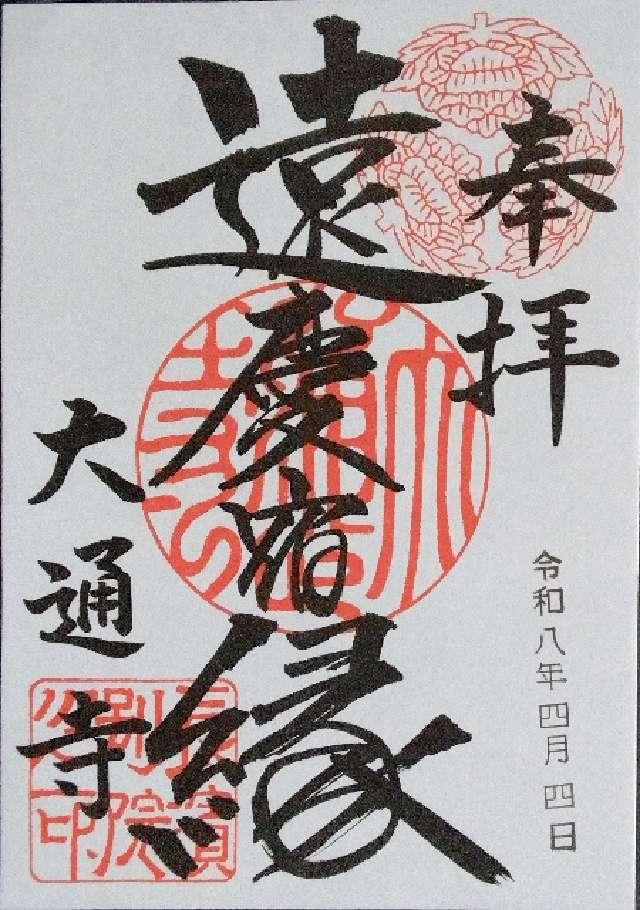 奉拝
令和八年四月四日
遠慶宿縁
大通寺
長濱
別院
之印